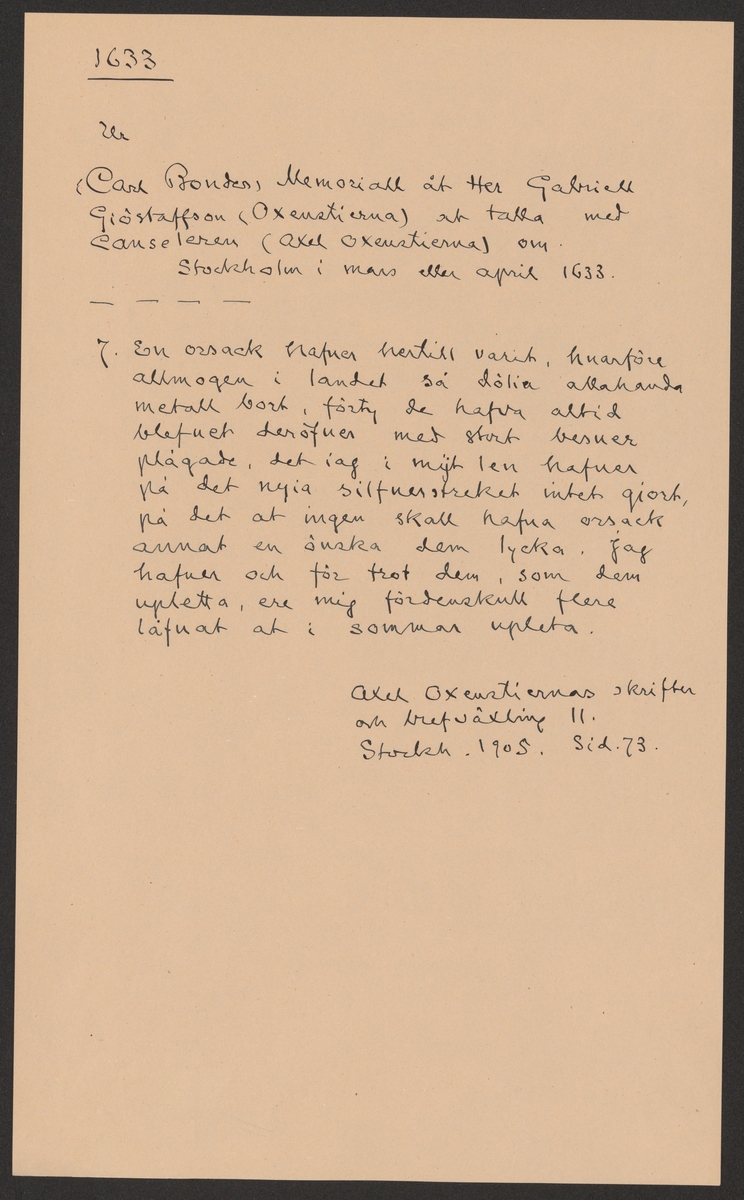 1633
Ur
(Carl Bondes) Memoriall åt Her Gabriell
Giöstaffson (Oxenstierna) at talla med
Canseleren (Axel Oxenstierna) om.
Stockholm i mars eller april 1633.
— — — —
7. En orsack hafuer hertill varit, huarföre
allmogen i landet så dölia allahanda
metall bort, förty de hafva altid
blefuet deröfuer med stort besuer
plågade, det iag i mijt len hafuer
på det nyia silfuerstreket intet giort,
på det at ingen skall hafua orsack
annat en önska dem lycka. Jag
hafuer och för trot dem, som dem
upletta, ere mig fördenskull flere
låfuat at i sommar upleta.
Axel Oxenstiernas skrifter
och brefväxling II.
Stockh. 1905. Sid. 73.